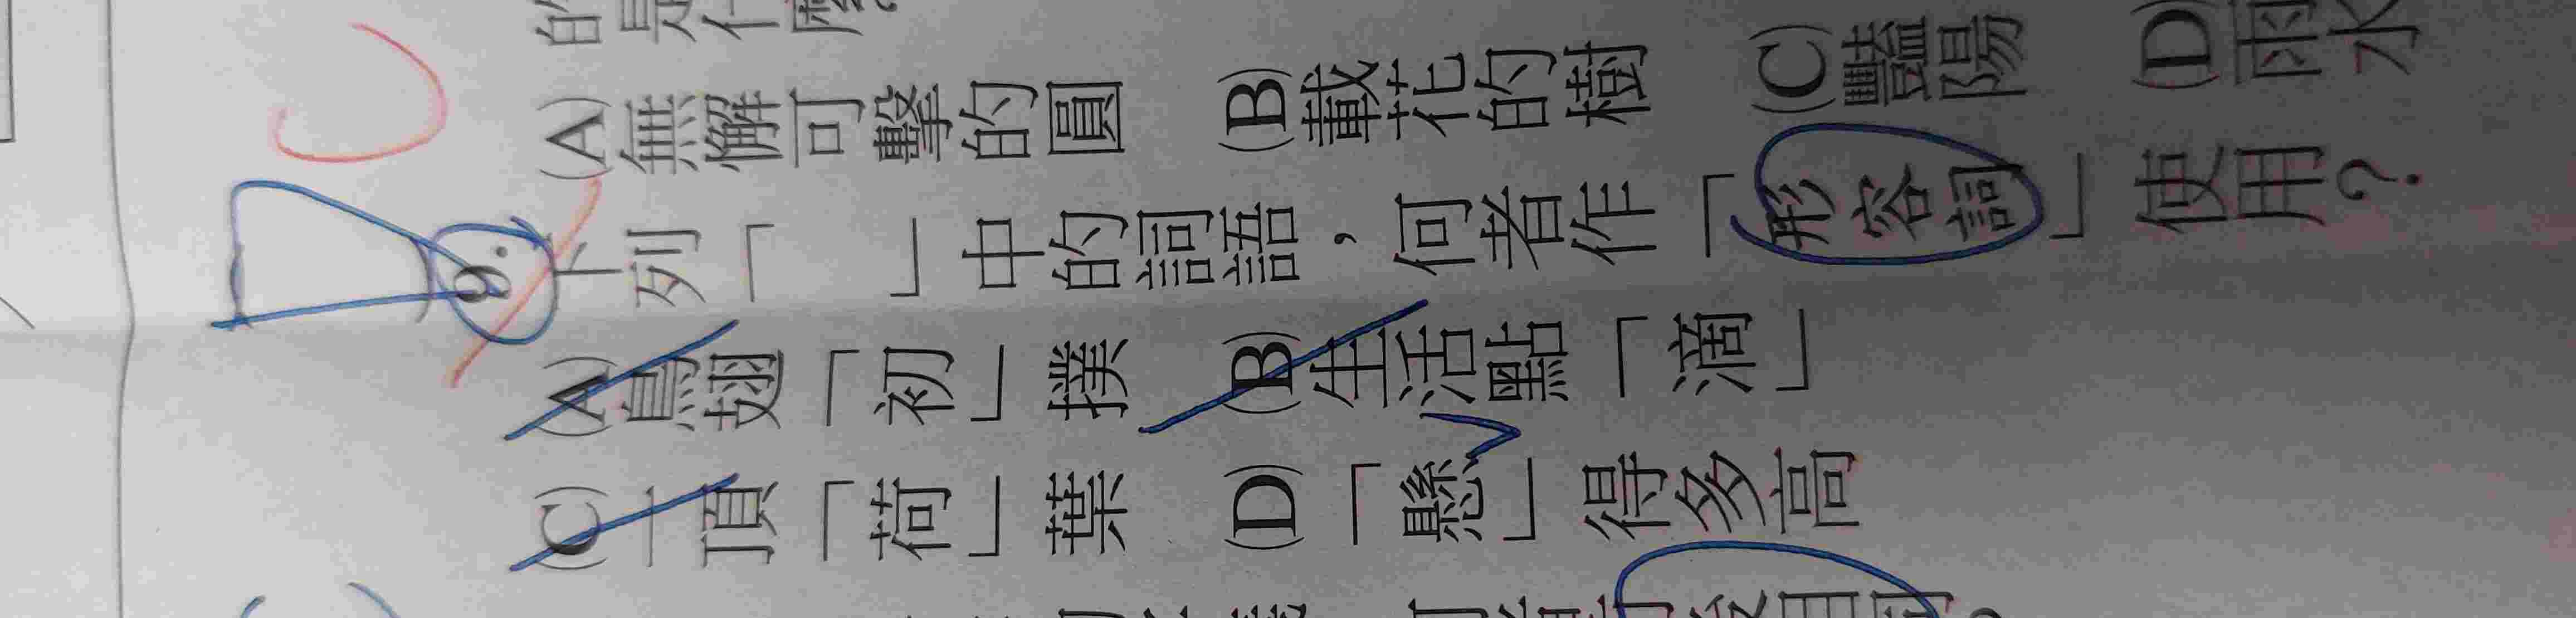 的是什麼?
(A)無懈可擊的圓 (B)載花的樹 (C)豔陽 (D)雨水
C
D
( )9.下列「 」中的詞語，何者作「形容詞」使用?
(A)鳥翅「初」撲 (B)生活點「滴」
(C)一頂「荷」葉 (D)「懸」得多高